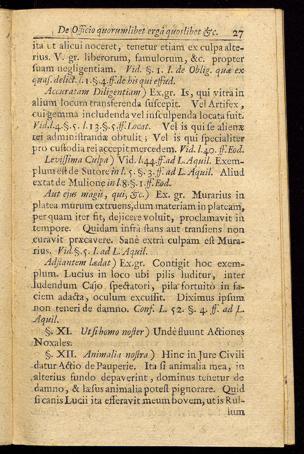 De Officio quorumlibet ergà quoslibet &c. 27
ita ut alicui noceret, tenetur etiam ex culpa alte-
rius. V. gr. liberorum, famulorum, &c. propter
suam negligentiam. Vid. §. 1. I. de Oblig. quæ ex
quas. delict. l. 1. §. 4. ff. de his qui effud.
Accuratam Diligentiam) Ex.gr. Is, qui vitrà in
alium locum transferenda suscepit. Vel Artifex,
cui gemma includenda vel insculpenda locata fuit.
Vid. l. 4. §. 5. l. 13. §. 5. ff. Locat. Vel is qui se alienæ
rei administrandæ obtulit; Vel is qui specialiter
pro custodia rei accepit mercedem. Vid. l. 40. ff. Eod.
Levissima Culpa) Vid. l. 44. ff. ad L. Aquil. Exem-
plum est de Sutore in l. 5. §. 3. ff. ad L. Aquil. Aliud
extat de Mulione in l. 8. §. 1. ff. Eod.
Aut ejus magis, qui, &c.) Ex. gr. Murarius in
platea murum extruens, dum materiam in plateam,
per quam iter fit, dejicere voluit, proclamavit in
tempore. Quidam infrà stans aut transiens non
curavit præcavere. Sanè extrà culpam est Mura-
rius. Vid. §. 5. I. ad L. Aquil.
Adstantem lædat) Ex.gr. Contigit hoc exem-
plum. Lucius in loco ubi pilis luditur, inter
ludendum Cajo spectatori, pila fortuitò in fa-
ciem adacta, oculum excussit. Diximus ipsum
non teneri de damno. Conf. L. 52. §. 4. ff. ad L.
Aquil.
§. XI. Ut si homo noster) Unde fluunt Actiones
Noxales.
§. XII. Animalia nostra) Hinc in Jure Civili
datur Actio de Pauperie. Ita si animalia mea, in
alterius fundo depaverint, dominus tenetur de
damno, & læsus animalia potest pignorare. Quid
si canis Lucii ita efferavit meum bovem, ut is Rul-
lium